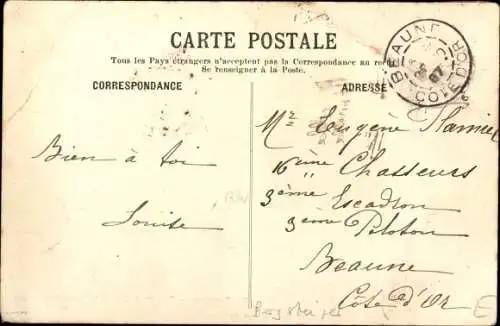 CARTE POSTALE
Tous les Pays étrangers n'acceptent pas la Correspondance au
Se renseigner à la Poste.
CORRESPONDANCE
ADRESSE
BEAUNE
07
COTE D'OR
Bien à toi
Louise
Mr Eugène
16ème Chasseurs
3ème " Escadron
3ème Peloton
Beaune
Côte d'Or
E